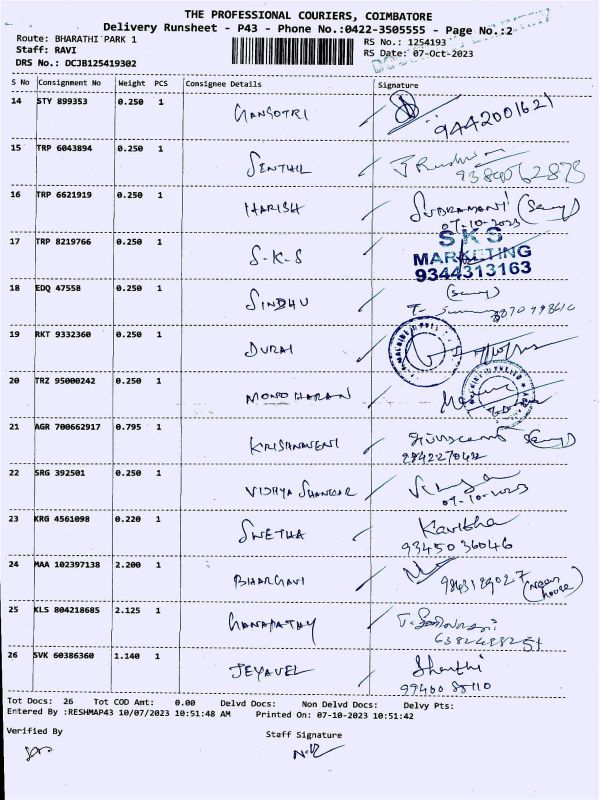 THE PROFESSIONAL COURIERS, COIMBATORE
Delivery Runsheet - P43 - Phone No.:0422-3505555 - Page No.:2
Route: BHARATHI PARK 1
RS No.: 1254193
Staff: RAVI
RS Date: 07-Oct-2023
DRS No.: DCJB125419302
S No Consignment No Weight PCS Consignee Details Signature
14 STY 899353 0.250 1 GANGOTRI 9442001621
15 TRP 6043894 0.250 1 SENTHIL
16 TRP 6621919 0.250 1 HARISH SUBRAMANI
07-10-2023
17 TRP 8219766 0.250 1 S-K-S SKS
MARKETING
9344313163
18 EDQ 47558 0.250 1 SINDHU
19 RKT 9332360 0.250 1 DURAI
20 TRZ 95000242 0.250 1 MONOHARAN
21 AGR 700662917 0.795 1 KRISHNAVENI
22 SRG 392501 0.250 1 VIDHYA SHANKAR
07-10-2023
23 KRG 4561098 0.220 1 SWETHA Kavitha
93450 36046
24 MAA 102397138 2.200 1 BHARGAVI
25 KLS 804218685 2.125 1 GANAPATHY
26 SVK 60386360 1.140 1 JEYAVEL Shanthi
Tot Docs: 26 Tot COD Amt: 0.00 Delvd Docs: Non Delvd Docs: Delvy Pts:
Entered By :RESHMAP43 10/07/2023 10:51:48 AM Printed On: 07-10-2023 10:51:42
Verified By
Staff Signature